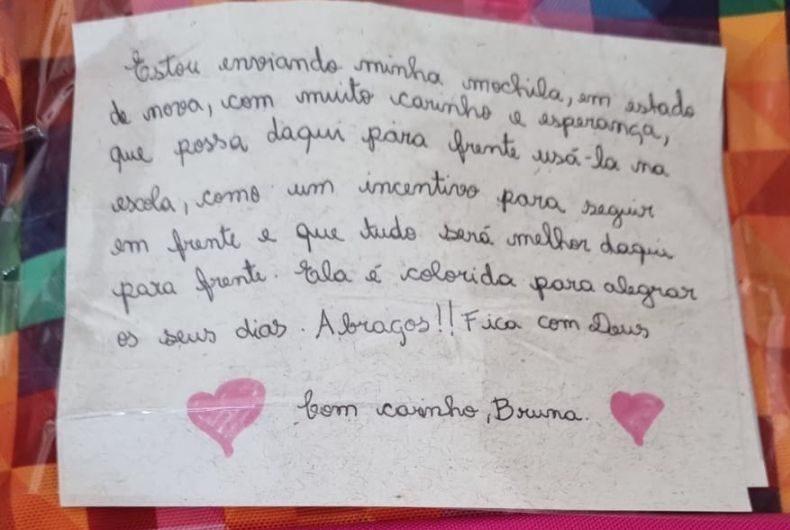 Estou enviando minha mochila, em estado
de nova, com muito carinho e esperança,
que possa daqui para frente usá-la na
escola, como um incentivo para seguir
em frente e que tudo será melhor daqui
para frente. Ela é colorida para alegrar
os seus dias. Abraços!! Fica com Deus
Com carinho, Bruna.